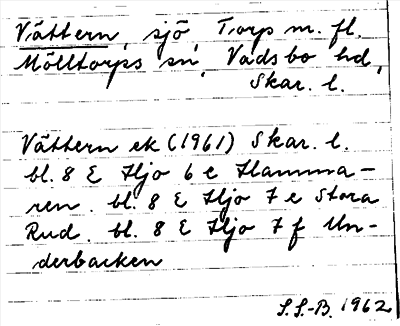 Vättern, sjö, Torp m. fl.
Mölltorps sn, Vadsbo hd,
Skar. l.
Vättern ek (1961) Skar. l.
bl. 8 E Hjo 6 e Hamma-
ren. bl. 8 E Hjo 7 e Stora
Rud. bl. 8 E Hjo 7 f Un-
derbacken
S.S.-B. 1962